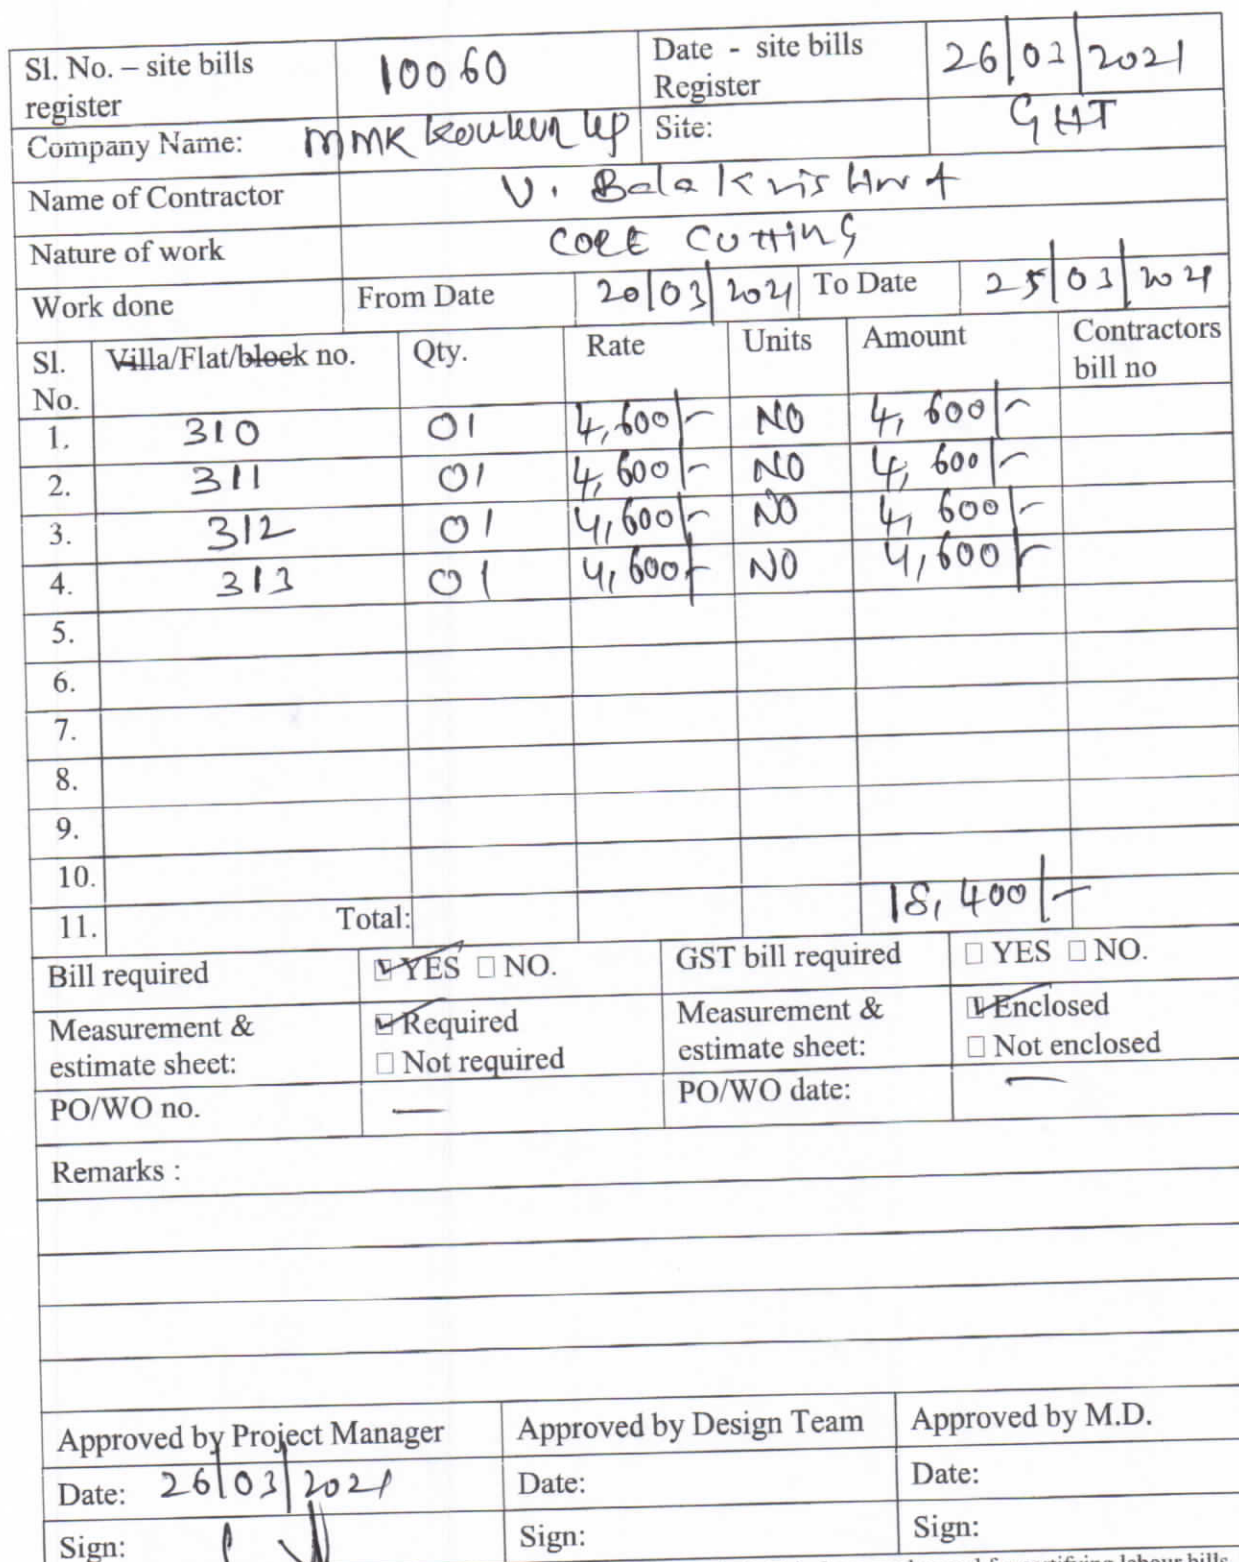 Sl. No. – site bills register 10060 Date - site bills Register 26/03/2021
Company Name: MMK Site: GHT
Name of Contractor V. Balakrishna
Nature of work CORE CUTTING
Work done From Date 20/03/2021 To Date 25/03/2021
Sl. No. Villa/Flat/block no. Qty. Rate Units Amount Contractors bill no
1. 310 01 4,600/- NO 4,600/-
2. 311 01 4,600/- NO 4,600/-
3. 312 01 4,600/- NO 4,600/-
4. 313 01 4,600/- NO 4,600/-
5.
6.
7.
8.
9.
10.
11. Total: 18,400/-
Bill required ☑ YES □ NO. GST bill required □ YES □ NO.
Measurement & estimate sheet: ☑ Required □ Not required Measurement & estimate sheet: ☑ Enclosed □ Not enclosed
PO/WO no. — PO/WO date: —
Remarks :
Approved by Project Manager Approved by Design Team Approved by M.D.
Date: 26/03/2021 Date: Date:
Sign: Sign: Sign: